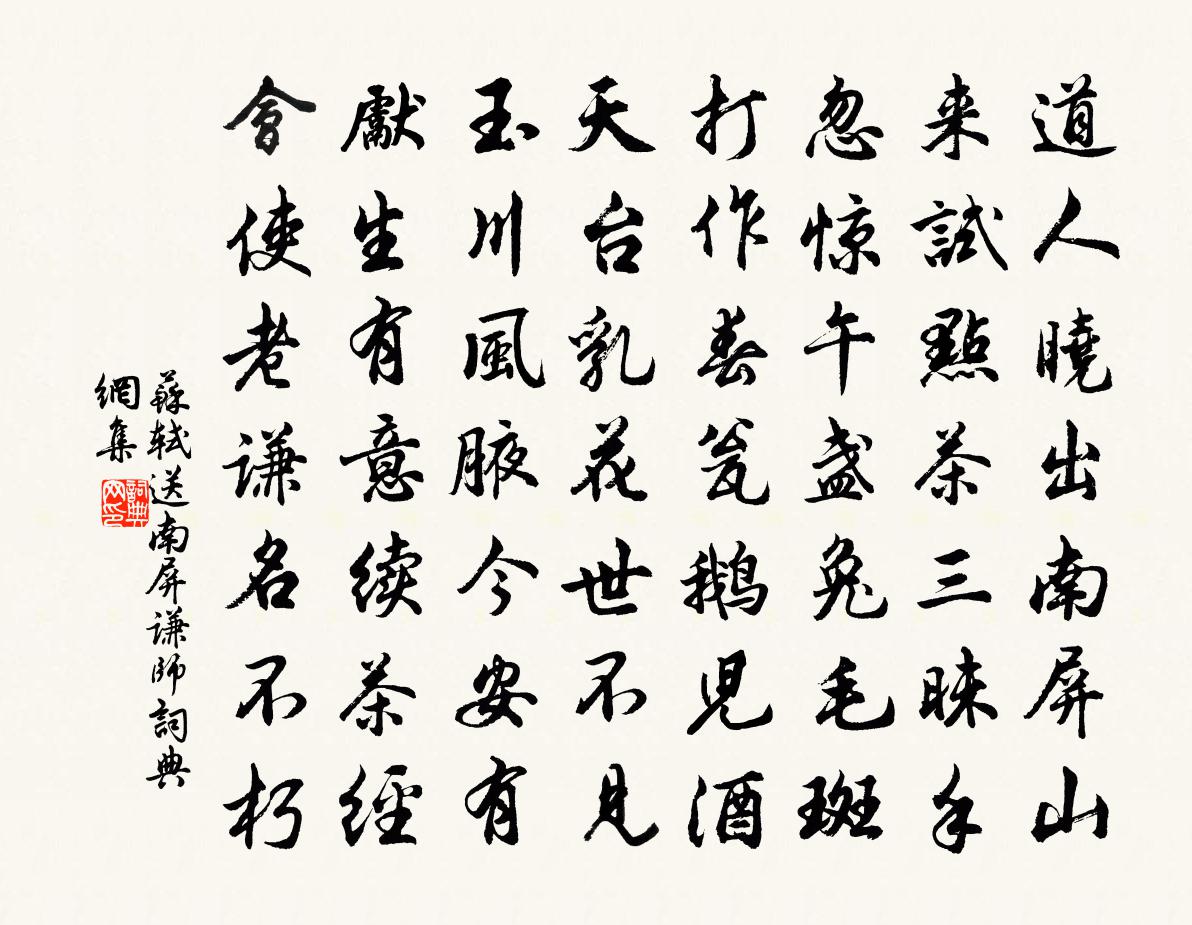 道人曉出南屏山
来試點茶三昧手
忽惊午盏兔毛斑
打作春瓮鹅児酒
天台乳花世不見
玉川風腋今安有
獻生有意续茶經
會使老谦名不朽
蘇軾送南屏谦師詞典
網集
詞典网印